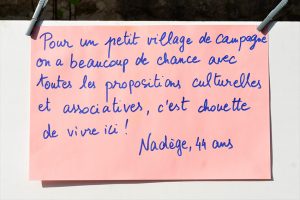 Pour un petit village de campagne
on a beaucoup de chance avec
toutes les propositions culturelles
et associatives, c'est chouette
de vivre ici !
Nadège, 44 ans